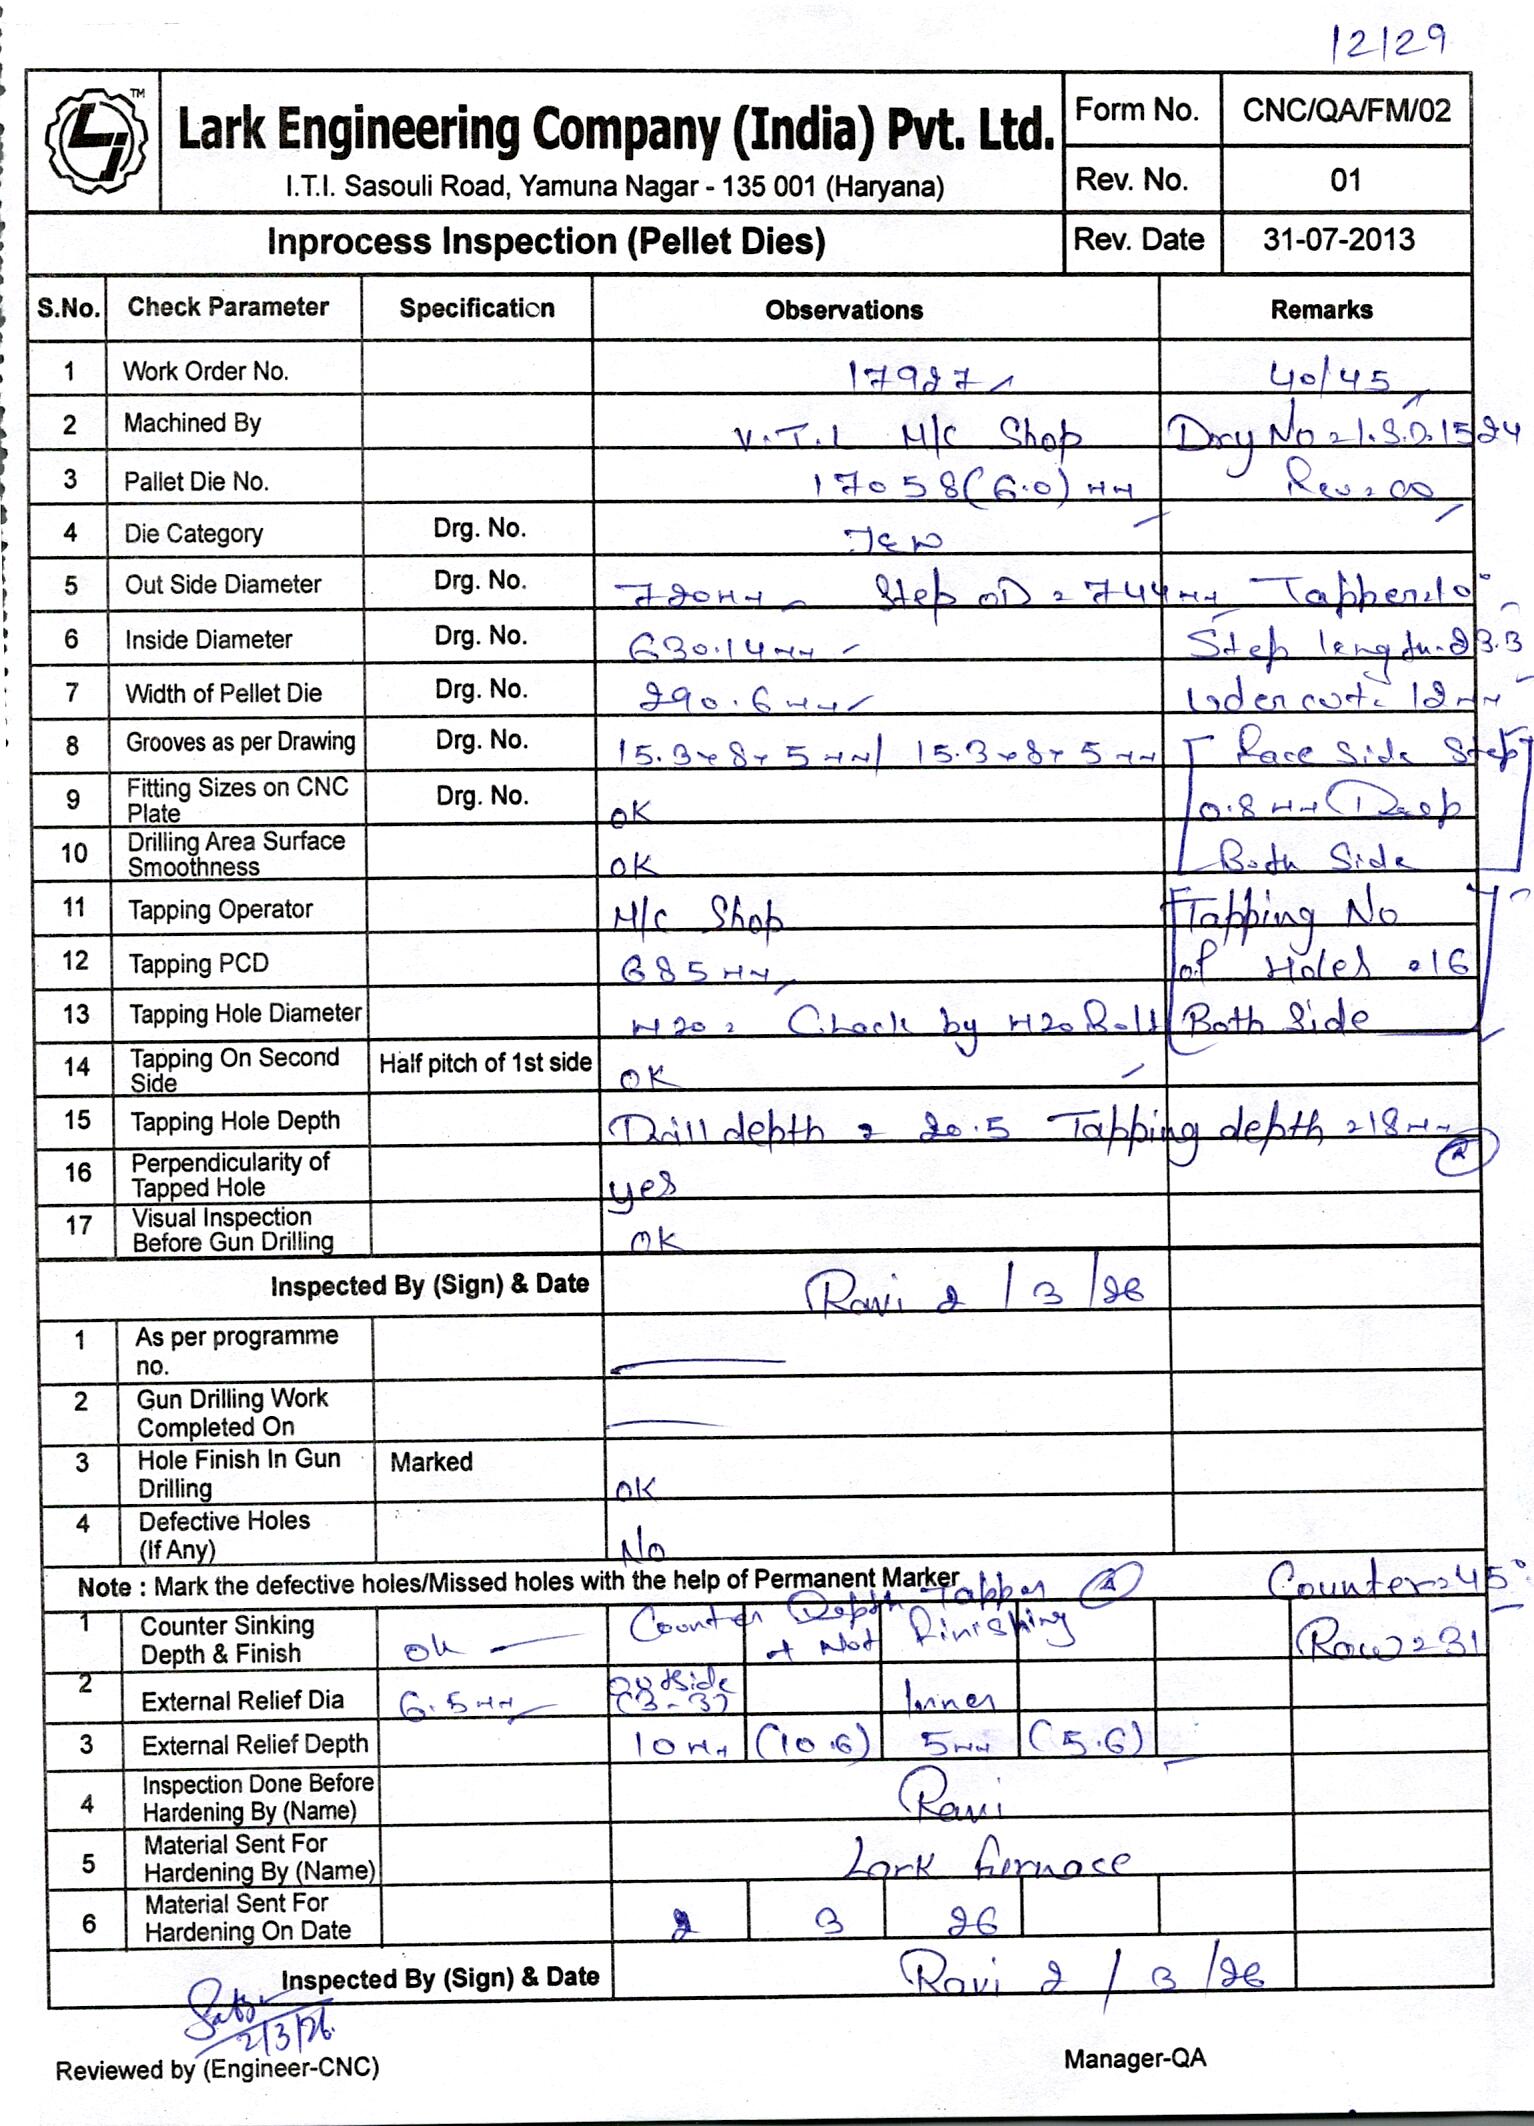 12129
TM
Lark Engineering Company (India) Pvt. Ltd.
I.T.I. Sasouli Road, Yamuna Nagar - 135 001 (Haryana)
Form No. CNC/QA/FM/02
Rev. No. 01
Inprocess Inspection (Pellet Dies) Rev. Date 31-07-2013
S.No. Check Parameter Specification Observations Remarks
1 Work Order No. 17927 40/45
2 Machined By V.T.L M/C Shop Drg No = 1.S.D.1524
3 Pallet Die No. 17058(6.0)mm Rev = 00
4 Die Category Drg. No.
5 Out Side Diameter Drg. No. 720mm Step OD = 744mm Tapper=10°
6 Inside Diameter Drg. No. 630.14mm Step length=23.3
7 Width of Pellet Die Drg. No. 290.6mm Undercut= 12mm
8 Grooves as per Drawing Drg. No. 15.3x8x5mm/ 15.3x8x5mm Race Side Step
9 Fitting Sizes on CNC Plate Drg. No. OK 0.8mm Deep
10 Drilling Area Surface Smoothness OK Both Side
11 Tapping Operator M/C Shop Tapping No
12 Tapping PCD 685mm of Holes =16
13 Tapping Hole Diameter M20 = Check by M20 Bolt Both Side
14 Tapping On Second Side Half pitch of 1st side OK
15 Tapping Hole Depth Drill depth = 20.5 Tapping depth =18mm
16 Perpendicularity of Tapped Hole yes
17 Visual Inspection Before Gun Drilling OK
Inspected By (Sign) & Date Ravi 2/3/26
1 As per programme no.
2 Gun Drilling Work Completed On
3 Hole Finish In Gun Drilling Marked OK
4 Defective Holes (If Any) No
Note : Mark the defective holes/Missed holes with the help of Permanent Marker Counter=45°
1 Counter Sinking Depth & Finish ok Counter Depth Tapper & Not Finishing Row=31
2 External Relief Dia 6.5mm Outside (3-3) Inner
3 External Relief Depth 10mm (10.6) 5mm (5.6)
4 Inspection Done Before Hardening By (Name) Ravi
5 Material Sent For Hardening By (Name) Lark furnace
6 Material Sent For Hardening On Date 2 3 26
Inspected By (Sign) & Date Ravi 2/3/26
2/3/26.
Reviewed by (Engineer-CNC) Manager-QA